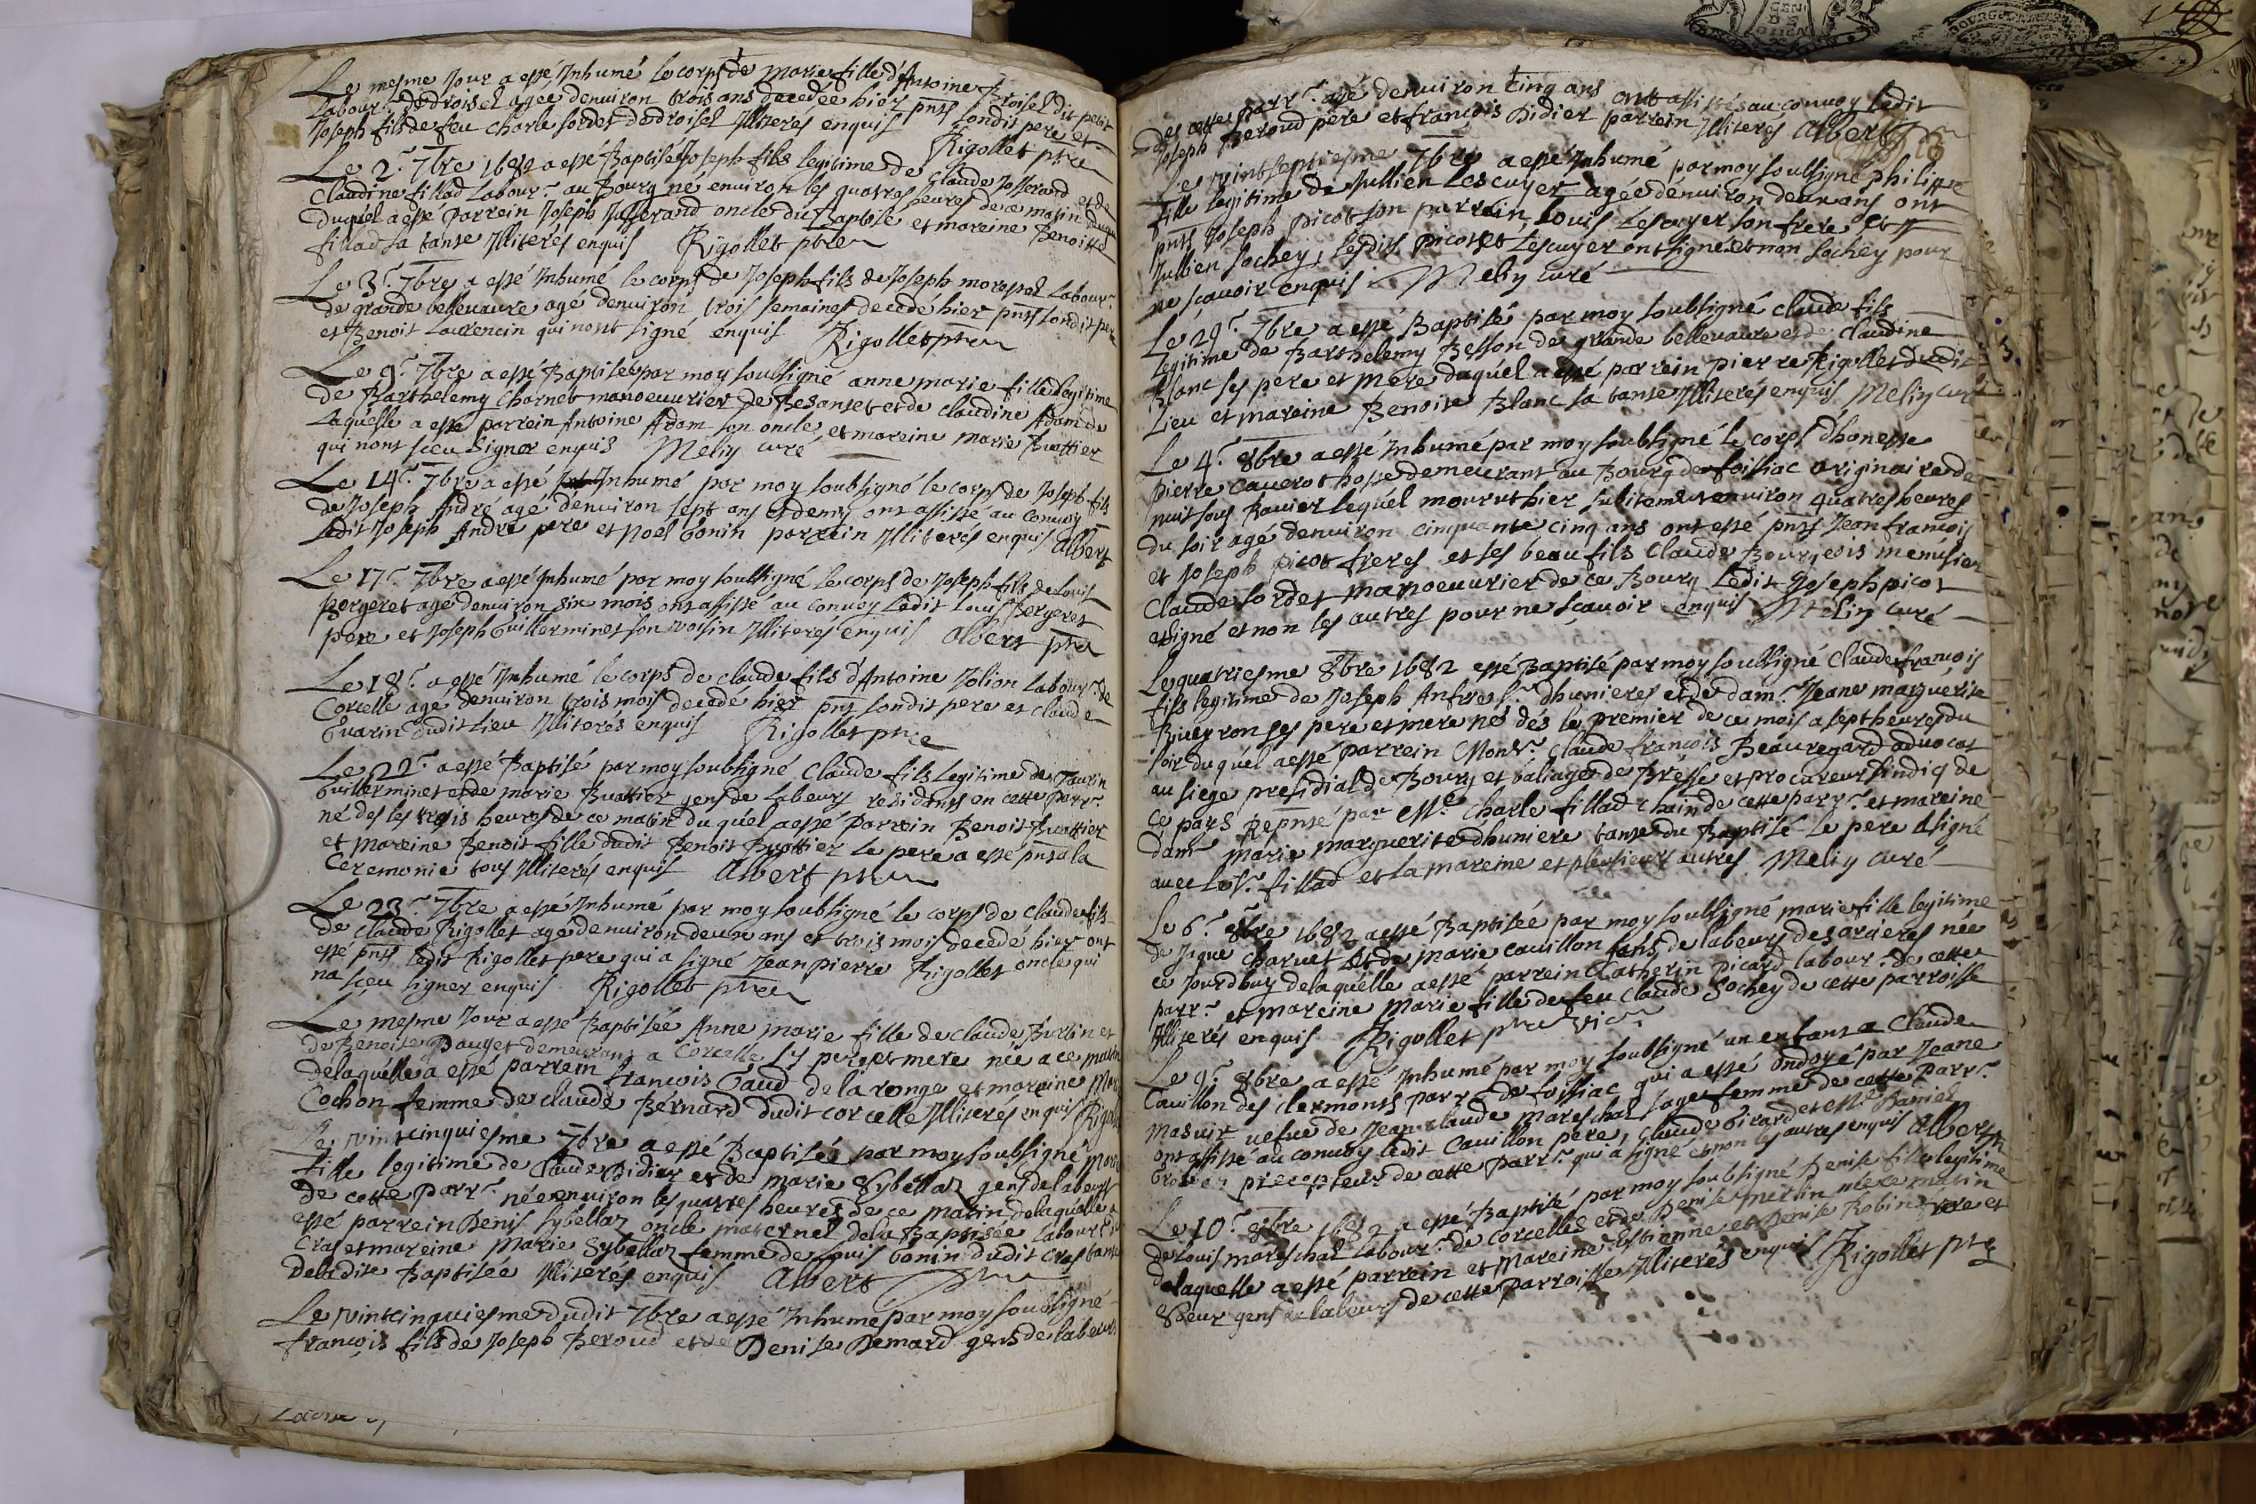 Le mesme Jour a esté Inhumé le corps de Marie fille d'Antoine Froisel dit petit
Labour.r dedroisel agée denuiron trois ans decedée hier pnts sondit pere et
Joseph fils de feu Charle sordet dedroisel Illiteres enquis Rigollet ptre
Le 2.e 7bre 1682 a esté Baptisé Joseph fils legitime de Claude Josserand et de
Claudine fillad Labour.r au Bourg né enuiron les quatres heures de ce matin
duquel a esté parrein Joseph Josserand oncle du Baptisé et mareine Benoitte
fillad sa tante Illiterés enquis Rigollet ptre
Le 3.e 7bre a esté Inhumé le corps de Joseph fils de Joseph morestel Labour.r
de grande belleuaure agé denuiron trois semaines decedé hier pnts sondit pere
et Benoit Laurencin qui nont signé enquis Rigollet ptre
Le 9.e 7bre a esté Baptisée par moy soubsigné anne marie fille legitime
de Barthelemy Charnet manoeuurier de Besanset et de Claudine Adam de
Laquelle a esté parrein Antoine Adam son oncle et mareine Marie Buattier
qui nont sceu signer enquis Meliy curé
Le 14.e 7bre a esté Inhumé par moy soubsigné le corps de Joseph fils
de Joseph André agé denuiron sept ans et demy ont assisté au Conuoy
Ledit Joseph André pere et Noel bonin parrein Illiterés enquis Albert
Le 17.e 7bre a esté Inhumé par moy soubsigné le corps de Joseph fils de Louis
pergeret agé denuiron six mois ont assisté au conuoy Ledit Louis Bergeret
pere et Joseph Guillerminet son voisin Illiterés enquis Albert ptre
Le 18.e a esté Inhumé le corps de claude fils d'Antoine Jolion Labour.r de
Corcelle agé denuiron trois mois decedé hier pnt sondit pere et claude
Guarin dudit Lieu Illiterés enquis Rigollet ptre
Le 22.e a esté Baptisé par moy soubsigné Claude fils Legitime de Taurin
Guillerminet et de marie Buattier gens de Labeurs residants en cette parr.e
né des les trois heures de ce matin duquel a esté parrein Benoit Buattier
et Mareine Benoit fille dudit Benoit Buattier Le pere a esté pnt a la
Ceremonie tous Illiterés enquis Albert ptre
Le 23.e 7bre a esté Inhumé par moy soubsigné le corps de Claude fils
de Claude Rigollet agé denuiron deux ans et trois mois decedé hier ont
esté pnts Ledit Rigollet pere qui a signé Jean pierre Rigollet oncle qui
na sceu signer enquis Rigollet ptre
Le mesme Jour a esté Baptisée Anne marie fille de Claude Burtin et
de Benoite Bauget demeurans a Corcelle sy pere et mere née a ce matin
delaquelle a esté parrein francois Caud dela ronge et mareine
Cochon femme de claude Bernard dudit corcelle Illiterés enquis
Le vintcinquiesme 7bre a esté Baptisée par moy soubsigné
fille legitime de Claude Didier et de Marie Sybellaz gens de labeurs
de cette parr.e née enuiron les quatres heures de ce matin delaquelle a
esté parrein Denis Sybellaz oncle maternel dela Baptisée Labour.r
Cras et mareine Marie Sybellaz femme de Louis bonin dudit Cras tante
Deladite Baptisée Illiterés enquis Albert ptre
Le vintcinquiesme dudit 7bre a esté Inhumé par moy soubsigné
françois fils de Joseph Beroud et de Denise Demard gens de labeurs
des cette parr.e agé denuiron cinq ans ont assistés au conuoy Ledit
Joseph Beroud pere et françois Didier parrein Illiterés Albert
Le vintseptiesme 7bre a esté Inhumé par moy soubsigné philippe
fille legitime de Jullien Lescuyer agée denuiron deux ans ont
pnts Joseph picot son parrein, Louis Lescuyer son frere et
Jullien sochey, Lesdits picot et Lescuyer ont signé et non sochey pour
ne scauoir enquis Meliy curé
Le 29.e 7bre a esté Baptisé par moy soubsigné claude fils
Legitime de Barthelemy Besson de grande belleuaure et de claudine
Blanc ses pere et mere duquel a esté parrein pierre Rigollet dudit
Lieu et mareine Benoite Blanc sa tante Illiterés enquis Meliy curé
Le 4.e 8bre a esté Inhumé par moy soubsigné le corps dhoneste
pierre Cauerot hoste demeurant au Bourg de foissiac originaire de
nuit sous Rauier lequel mourut hier subitement enuiron quatres heures
du soir agé denuiron cinquante cinq ans ont esté pnts Jean francois
et Joseph picot freres et ses beau fils Claude Bourgeois menusier
Claude sordet manoeuurier de ce Bourg Ledit Joseph picot
a signé et non les autres pour ne sçauoir enquis Meliy curé
Le quatriesme 8bre 1682 esté Baptisé par moy soubsigné Claude francois
fils legitime de Joseph s.r dhunieres et de dam.e Jeane marguerite
Riueyron ses pere et mere né dés le premier de ce mois a sept heures du
soir duquel a esté parrein Mons.r Claude francois Beauregard aduocat
au siege presidial de Bourg et baliage de Bresse et procureur sindiq de
ce pays Repnté par Me Charle fillad chatelain de cette parr.e et mareine
dam.e Marie marguerite dhuniere tante du Baptisé Le pere a signé
auec led.s.r fillad et la mareine et plusieurs autres Meliy curé
Le 6.e 8bre 1682 a esté Baptisée par moy soubsigné marie fille legitime
de Jaque charuet et de marie cauillon gens de labeurs desarcieres née
ce Jourdhuy delaquelle a esté parrein Catherin picard labour.r de cette
parr.e et mareine Marie fille de feu Claude sochey de cette parroisse
Illiterés enquis Rigollet ptre vic.re
Le 9.e 8bre a esté Inhumé par moy soubsigné un enfant a Claude
Cauillon des clermonts parr.e de foissiac qui a esté ondoyé par Jeane
Masuir uefue de Jean claude Mareschal sage femme de cette parr.e
ont assisté au conuoy ledit Cauillon pere, claude Girard et Me Daniel
precepteur de cette parr.e qui a signé et non les autres enquis Albert
Le 10.e 8bre 1682 a esté Baptisé par moy soubsigné Denise fille legitime
de Louis mareschal labour.r de corcelles et de Denise merlin née ce matin
delaquelle a esté parrein et Mareine Estienne et Denise Robin frere et
Soeur gens de labeurs de cette parroisse Illiterés enquis Rigollet ptre